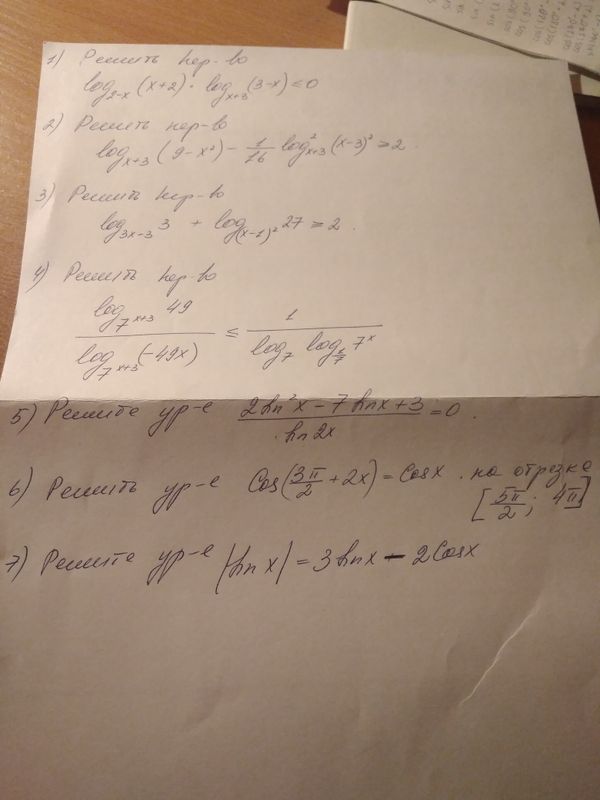 1) Решить нер-во
log₂₋ₓ(x+2)·logₓ₊₃(3-x)≤0
2) Решить нер-во
logₓ₊₃(9-x²) - 1/16 log²ₓ₊₃(x-3)² ≥ 2.
3) Решить нер-во
log₃ₓ₋₃ 3 + log_(x-1)² 27 ≥ 2.
4) Решить нер-во
log_7^(x+3) 49 / log_7^(x+3) (-49x) ≤ 1 / log₇ log_1/7 7ˣ
5) Решите ур-е (2 sin²x - 7 sin x + 3) / sin 2x = 0.
6) Решить ур-е Cos(3π/2 + 2x) = Cos x. на отрезке
[5π/2; 4π]
7) Решите ур-е |sin x| = 3 sin x - 2 Cos x